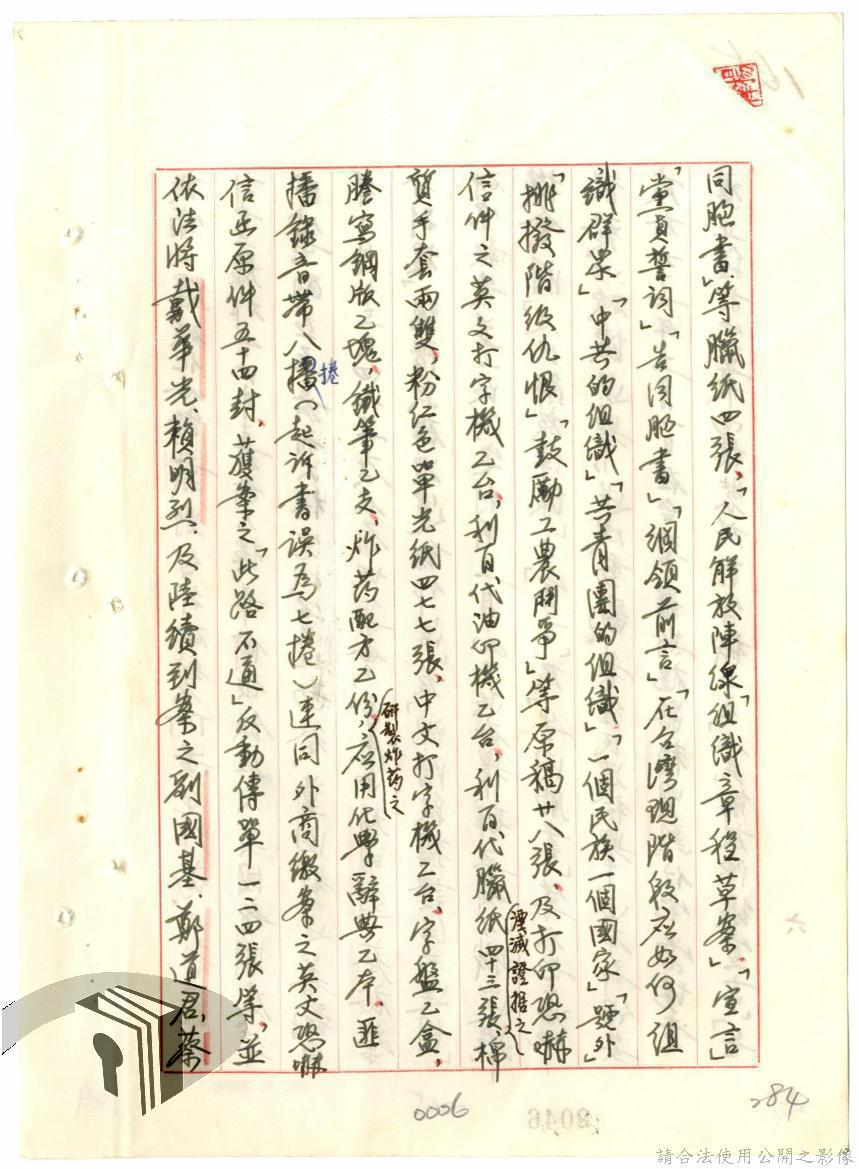 同胞書」等臘紙四張、「人民解放陣線「組織章程草案」、「宣言」
「黨員誓詞」「告同胞書」「綱領前言」「在台灣現階段應如何組
織群眾」「中共的組織」「共青團的組織」「一個民族一個國家」「號外」
「挑撥階級仇恨」「鼓勵工農鬥爭」等原稿廿八張、及打印恐嚇
信件之英文打字機乙台、利百代油印機乙台、利百代臘紙四十三張、湮滅證據之棉
質手套兩雙、粉紅色單光紙四七七張、中文打字機乙台、字盤乙盒、
謄寫鋼版乙塊、鐵筆乙支、炸药配方乙份、研製炸药之應用化學辭典乙本、匪
播錄音帶八捲(起訴書誤為七捲)連同外商繳案之英文恐嚇
信函原件五十四封、獲案之「此路不通」反動傳單一二四張等、並
依法將戴華光、賴明烈、及陸續到案之劉國基、鄭道君、蔡
0006
284
2046
請合法使用公開之影像